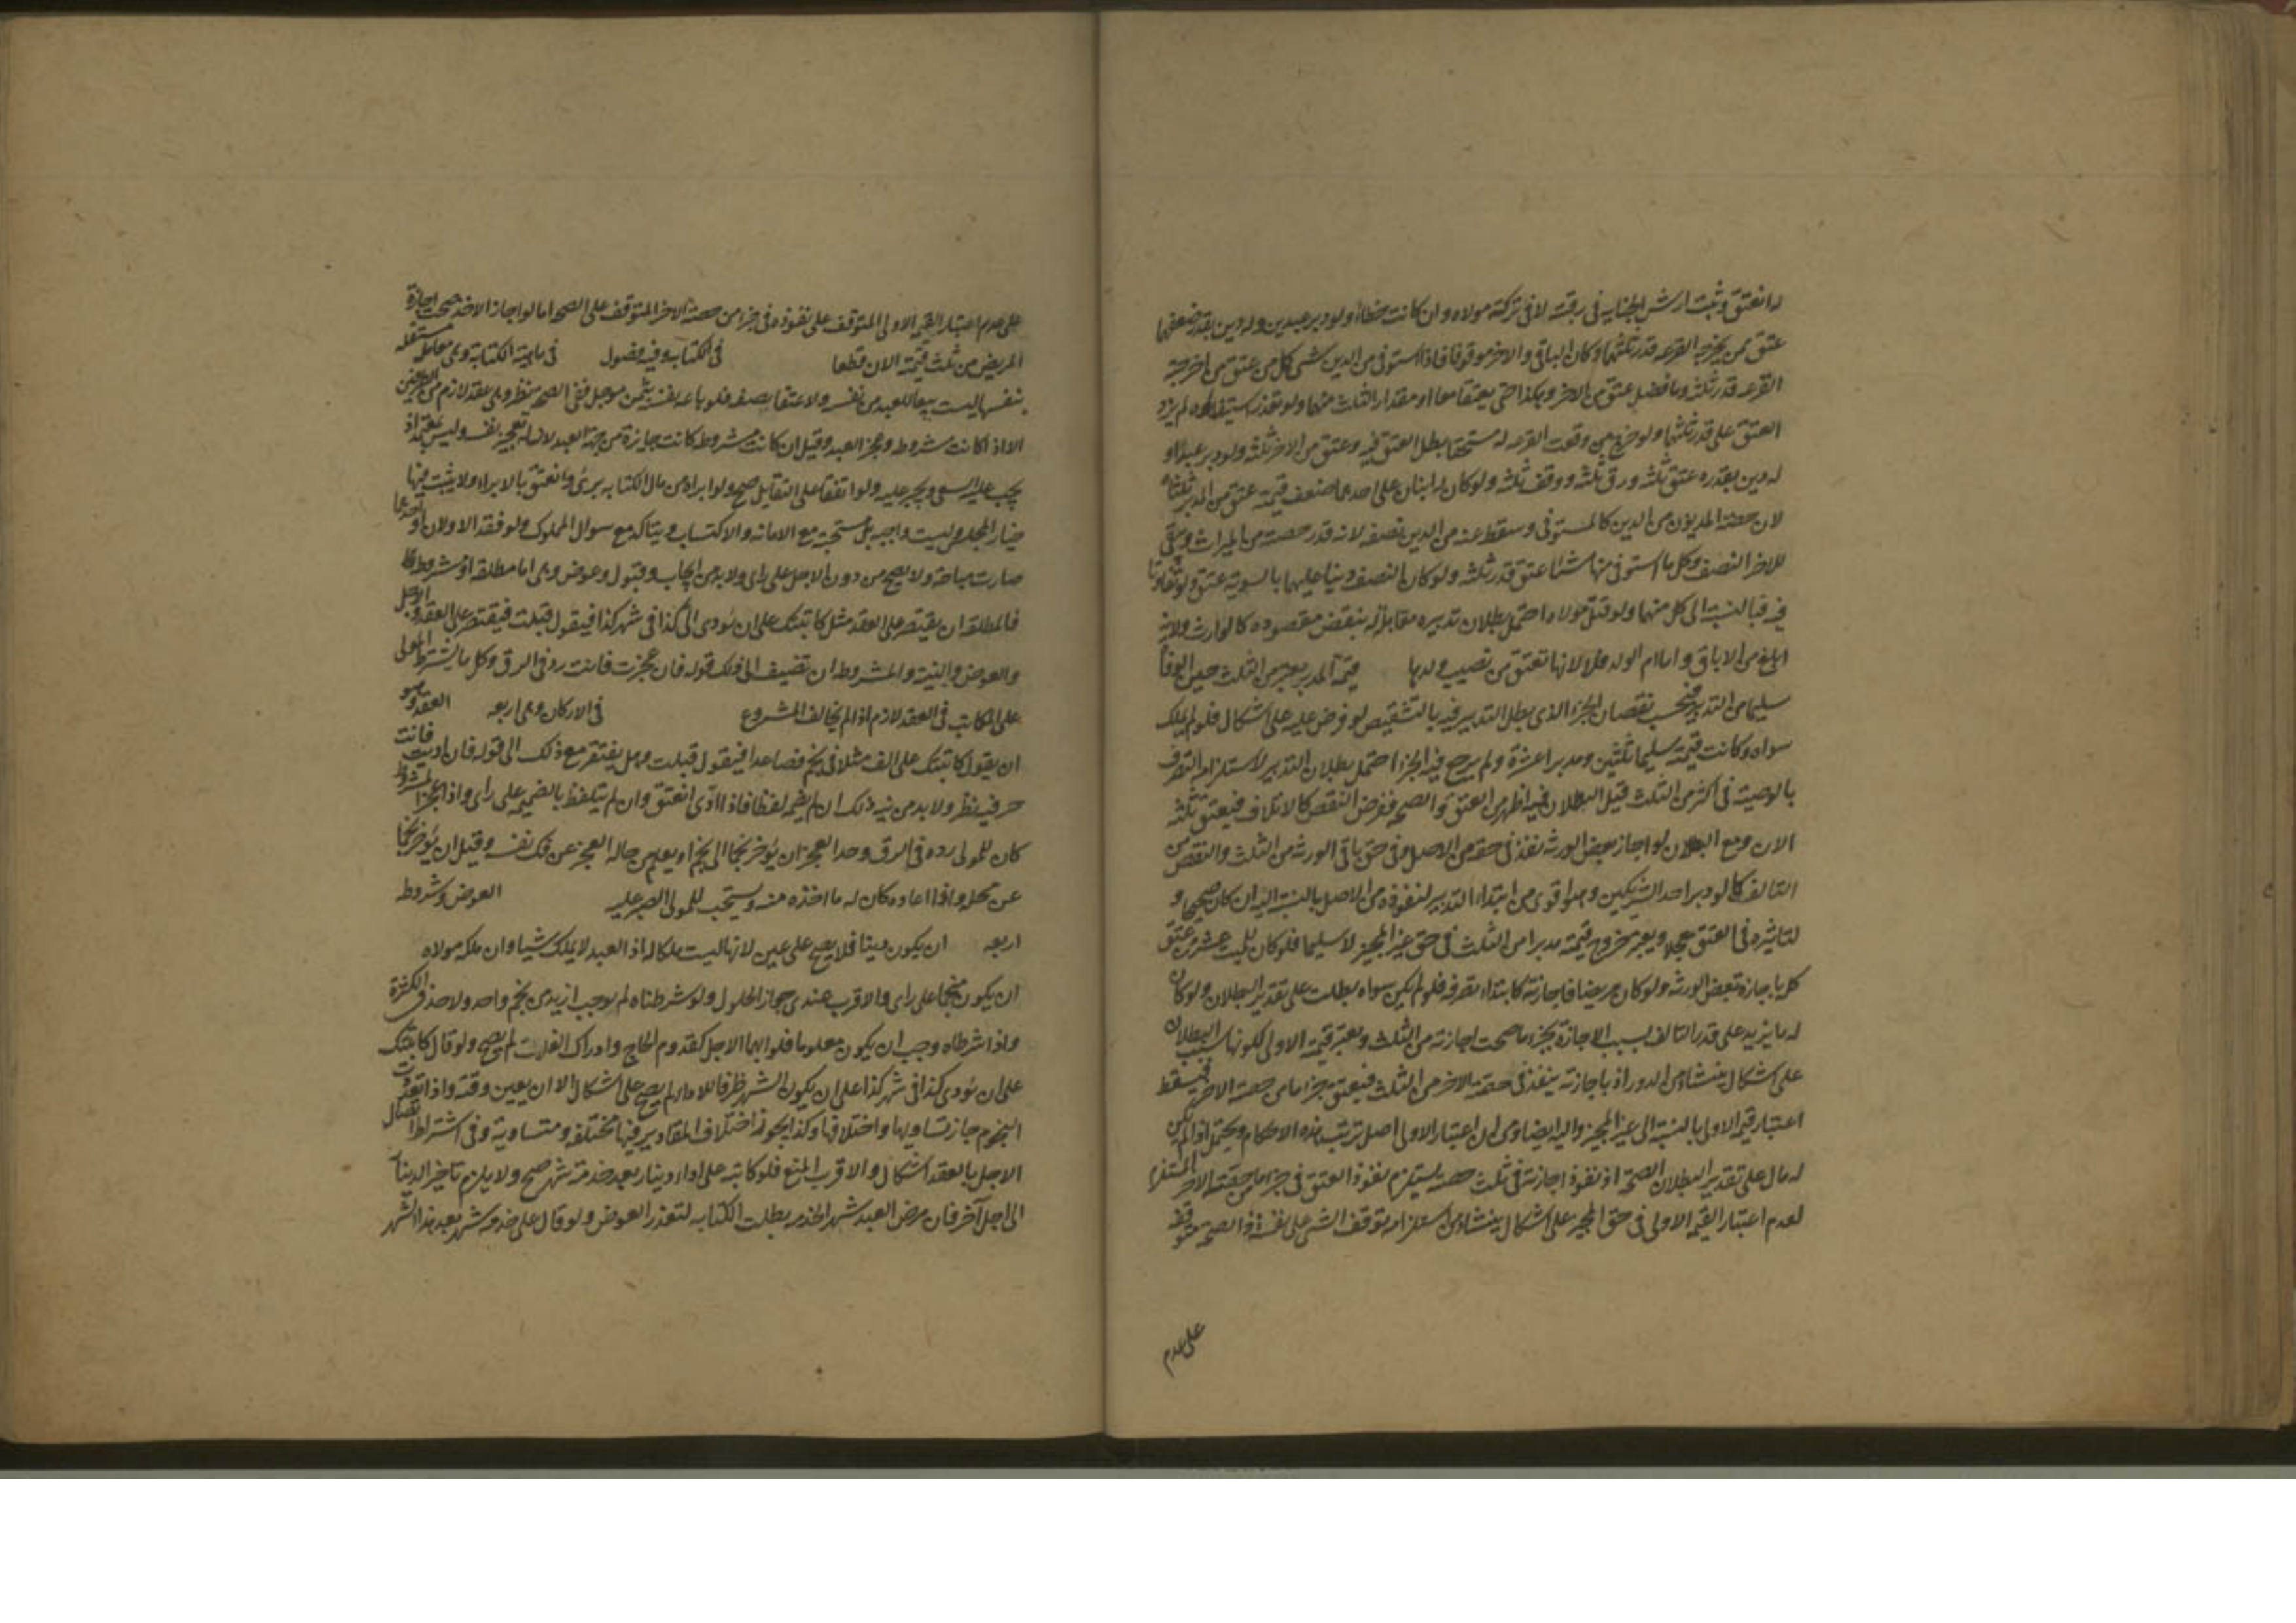 له انعتق وثبت ارش الجنايه فى رقبته لا فى تركة مولاه وان كانت خطاء ولو دبر عبدين وله دين بقدر ضعفهما
عتق ممن يخرجه القرعه قدر ثلثهما وكان الباقى والاخر موقوفا فاذا استوفى من الدين شى كمل من عتق من اخرجته
القرعه قدر ثلثه وما فضل عتق من الاخر وهكذا حتى يعتقا معا او مقدار الثلث منهما ولو تعذر استيفاوه لم يزد
العتق على قدر ثلثهما ولو خرج من وقعت القرعه له مستحقا بطل العتق فيه وعتق من الاخر ثلثه ولو دبر عبدا و
له دين بقدره عتق ثلثه ورق ثلثه ووقف ثلثه ولو كان له ابنان على احدهما ضعف قيمته عتق من المدبر ثلثاه
لان حصة المديون من الدين كالمستوفى وسقط عنه من الدين نصفه لانه قدر حصته من الميراث ويبقى
للاخر النصف وكل ما استوفى منها شيئا عتق قدر ثلثه ولو كان النصف دينا عليهما بالسوية عتق ولو تفاوتا
فيه فبالنسبة الى كل منهما ولو قتل مولاه احتمل بطلان تدبيره مقابلة له بنقيض مقصوده كالوارث ولانه
ابلغ من الاباق واما ام الولد فلا لانها تعتق من نصيب ولدها قيمة المدبر يعتبر من الثلث حين الوفاة
سليما من التدبير فيحسب نقصان الجزء الذى بطل التدبير فيه بالتشقيص لو فرض عليه على اشكال فلو لم يملك
سواه وكانت قيمته سليما ثلثين ومدبرا عشرة ولم يرجع فيه الجزء احتمل بطلان التدبير لاستلزامه التصرف
بالوصية فى اكثر من الثلث قبل البطلان فيه اظهر العتق والصحه ففرض النقص كالاتلاف فيعتق ثلثه
الان ومع البطلان لو اجاز بعض الورثه نفذ فى حقه من الاصل وفى حق باقى الورثه من الثلث والنقص من
التالف كما لو دبر احد الشريكين وهو اقوى من ابتداء التدبير لنفوذه من الاصل بالنسبة اليه ان كان صحيحا و
لتاثيره فى العتق معجلا ويعتبر خروج قيمته مدبرا من الثلث فى حق غير المجيز لا سليما فلو كان للميت عشرون عتق
كله باجازة بعض الورثه ولو كان مريضا فاجازته كابتداء تصرفه فلو لم يكن سواه بطلت على تقدير البطلان ولو كان
له ما يزيد على قدر التالف بسبب الاجازة بجزء ما صحت اجازته من الثلث ويعتبر قيمته الاولى لكونها سبب البطلان
على اشكال ينشا من الدور اذ باجازته ينفذ فى حصة الاخر من الثلث فيعتق جزء ما من حصة الاخر فيسقط
اعتبار قيمه الاولى بالنسبة الى غير المجيز واليه ايضا ومن ان اعتبار الاولى اصل ترتب هذه الاحكام ويحتمل اذا لم يكن
له مال على تقدير البطلان الصحة اذ نفوذ اجازته فى ثلث حصته يستلزم نفوذ العتق فى جزء ما من حصة الاخر المستلزم
لعدم اعتبار القيمه الاولى فى حق المجيز على اشكال ينشا من استلزامه توقف الشى على نفسه اذ الصحه متوقفه
على عدم
على عدم اعتبار القيمه الاولى المتوقف على نفوذه فى جزء من حصة الاخر المتوقف على الصحه اما لو اجاز الاخر صحت اجازة
المريض من ثلث قيمته الان قطعا فى الكتابه وفيه فصول فى ماهية الكتابة وهى معامله مستقله
بنفسها ليست بيعا للعبد من نفسه ولا عتقا بصفه فلو باعه نفسه بثمن موجل ففى الصحه نظر وهى عقد لازم من الطرفين
الا اذا كانت مشروطه وعجز العبد وقيل ان كانت مشروطه كانت جايزة من جهة العبد لان له تعجيز نفسه وليس بمعتمد اذ
يجب عليه السعى ويجبر عليه ولو اتفقا على التقايل صح ولو ابراه من مال الكتابه برئ وانعتق بالابراء ولا يثبت فيها
خيار المجلس وليست واجبه بل مستحبة مع الامانه والاكتساب ويتاكد مع سوال المملوك ولو فقد الاولان او احدهما
صارت مباحة ولا يصح من دون الاجل على راى ولا بد من ايجاب وقبول وعوض وهى اما مطلقه او مشروطه
فالمطلقه ان يقتصر على العقد مثل كاتبتك على ان تودى الى كذا فى شهر كذا فيقول قبلت فيقتصر على العقد والاجل
والعوض والنية والمشروطه ان تضيف الى ذلك قوله فان عجزت فانت رد فى الرق وكل ما يشترط المولى
على المكاتب فى العقد لازم اذا لم يخالف المشروع فى الاركان وهى اربعه العقد وهو
ان يقول كاتبتك على الف مثلا فى نجم فصاعدا فيقول قبلت وهل يفتقر مع ذلك الى قوله فان اديت فانت
حر فيه نظر ولا بد من نيه ذلك ان لم يضمه لفظا فاذا ادى انعتق وان لم يتلفظ بالضميمه على راى واذا عجز المشروط
كان للمولى رده فى الرق وحد العجز ان يوخر نجما الى نجم او يعلم من حاله العجز عن فك نفسه وقيل ان يوخر نجما
عن محله واذا اعاده كان له ما اخذه منه ويستحب للمولى الصبر عليه العوض وشروطه
اربعه ان يكون دينا فلا يصح على عين لانها ليست ملكا له اذ العبد لا يملك شيئا وان ملكه مولاه
ان يكون منجما على راى والاقرب عندى جواز الحلول ولو شرطناه لم نوجب ازيد من نجم واحد ولا حد فى الكثرة
واذا شرطاه وجب ان يكون معلوما فلو ابهما الاجل كقدوم الحاج وادراك الغلات لم يصح ولو قال كاتبتك
على ان تودى كذا فى شهر كذا على ان يكون الشهر ظرفا للاداء لم يصح على اشكال الا ان يعين وقته واذا تعددت
النجوم جاز تساويها واختلافها وكذا يجوز اختلاف المقادير فيها مختلفه ومتساوية وفى اشتراط اتصال
الاجل بالعقد اشكال والاقرب المنع فلو كاتبه على اداء دينار بعد خدمة شهر صح ولا يلزم تاخير الدينار
الى اجل آخر فان مرض العبد شهر الخدمه بطلت الكتابه لتعذر العوض ولو قال على خدمة شهر بعد هذا الشهر